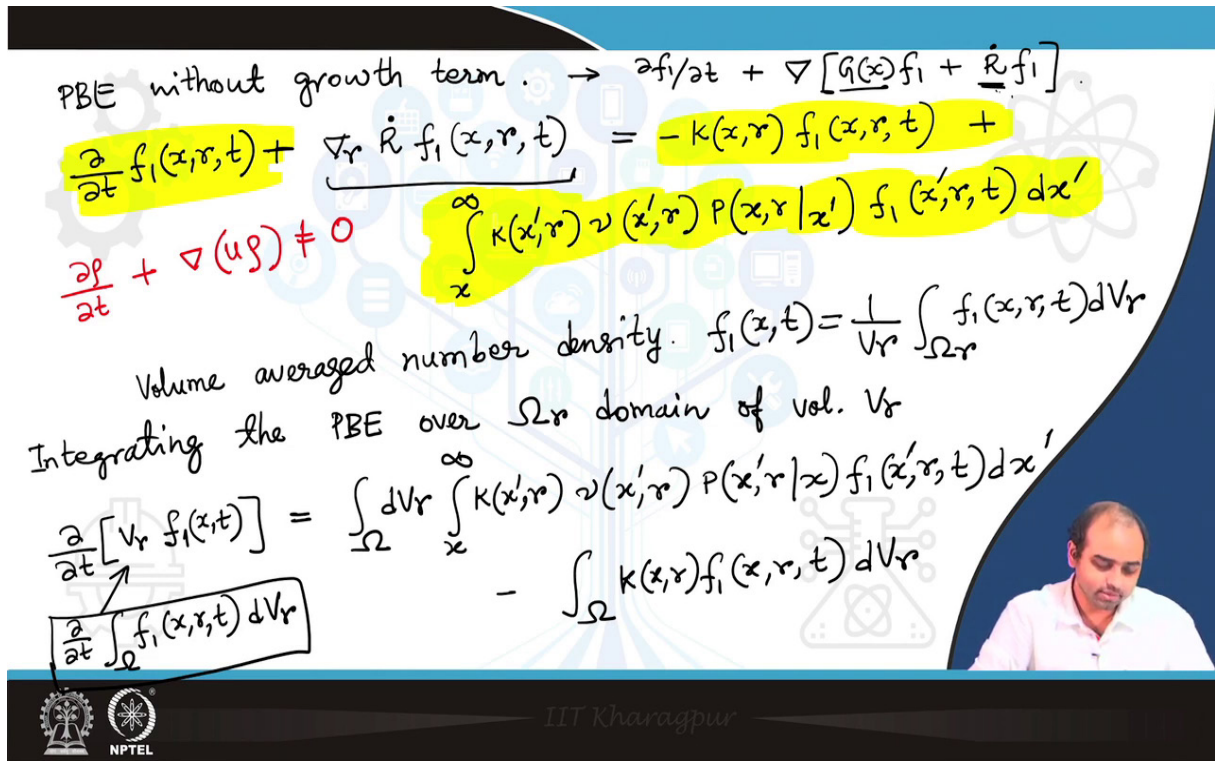 PBE without growth term. → ∂f₁/∂t + ∇[G(x)f₁ + Ṙf₁].
∂/∂t f₁(x,r,t) + ∇r Ṙ f₁(x,r,t) = -K(x,r) f₁(x,r,t) +
∫ₓ^∞ K(x',r) ν(x',r) P(x,r|x') f₁(x',r,t) dx'
∂ρ/∂t + ∇(uρ) ≠ 0
Volume averaged number density. f₁(x,t) = 1/Vr ∫_Ωr f₁(x,r,t) dVr
Integrating the PBE over Ωr domain of vol. Vr
∂/∂t [Vr f₁(x,t)] = ∫_Ω dVr ∫ₓ^∞ K(x',r) ν(x',r) P(x',r|x) f₁(x',r,t) dx'
- ∫_Ω K(x,r) f₁(x,r,t) dVr
∂/∂t ∫_Ω f₁(x,r,t) dVr
IIT Kharagpur
NPTEL